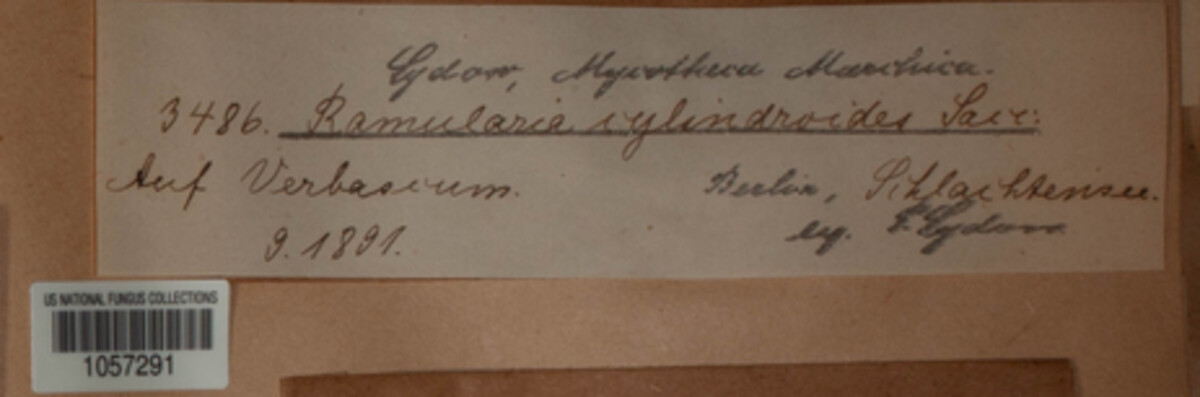 Sydow, Mycotheca Marchica.
3486. Ramularia cylindroides Sacc:
Auf Verbascum. Berlin, Schlachtensee.
9.1891. leg. P. Sydow
US NATIONAL FUNGUS COLLECTIONS
1057291